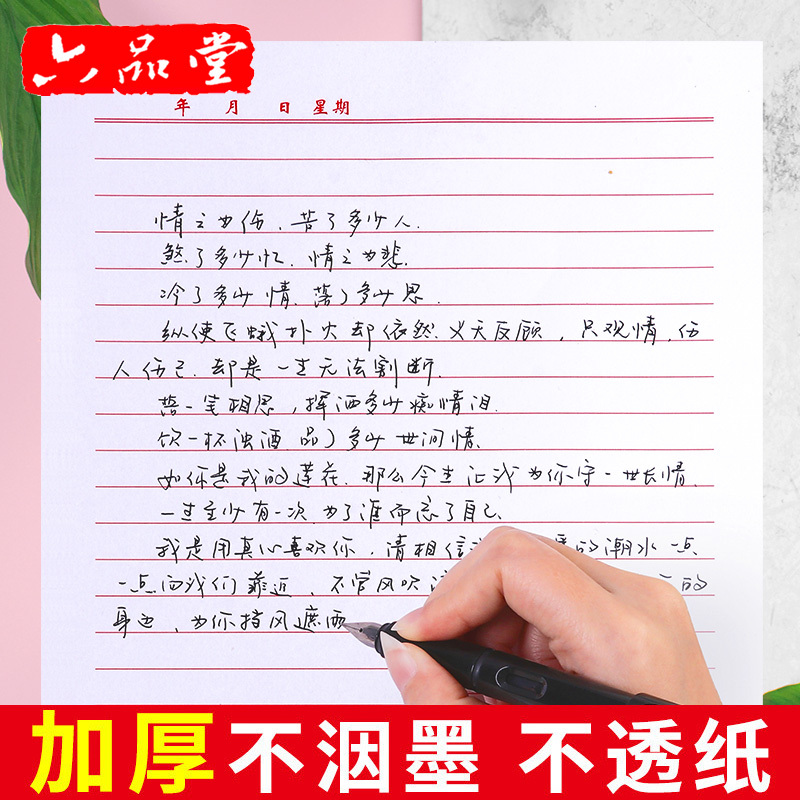 六品堂
年 月 日 星期
情之为伤、苦了多少人.
煞了多少忆、情之为悲.
冷了多少情、落了多少思.
纵使飞蛾扑火却依然义无反顾，只观情，伤
人伤己、却是一生无法割断.
蘸一笔相思，挥洒多少痴情泪.
饮一杯浊酒、品了多少世间情、
如你是我的莲花、那么今生让我为你守一世长情、
一生至少有一次、为了谁而忘了自己、
我是用真心喜欢你，请相信 的潮水一点、
一点向我们靠近、不管风吹 的
身边、为你挡风遮雨
加厚不洇墨 不透纸